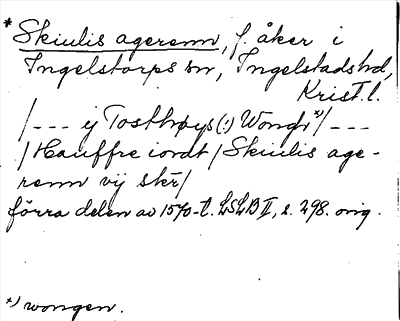 * Skiulis agerenn, f. åker i
Ingelstorps sn, Ingelstads hd,
Krist. l.
/--- ij Tosthøys (:) Wongh *)/ ---
/Hauffre iordt/ Skiulis age-
renn vij skr/
förra delen av 1570-t. LSLB II, s. 298. orig.
*) wongen.